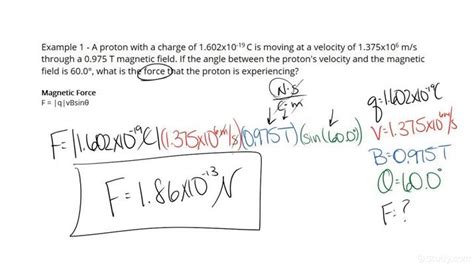 Example 1 - A proton with a charge of 1.602x10⁻¹⁹ C is moving at a velocity of 1.375x10⁶ m/s
through a 0.975 T magnetic field. If the angle between the proton's velocity and the magnetic
field is 60.0°, what is the force that the proton is experiencing?
Magnetic Force
F = |q|vBsinθ
N·s
C·m
F=|1.602x10⁻¹⁹C|(1.375x10⁶m/s)(0.975T)(sin(60.0°)
F=1.86x10⁻¹³N
q=1.602x10⁻¹⁹C
V=1.375x10⁶m/s
B=0.975T
θ=60.0°
F=?
Study.com